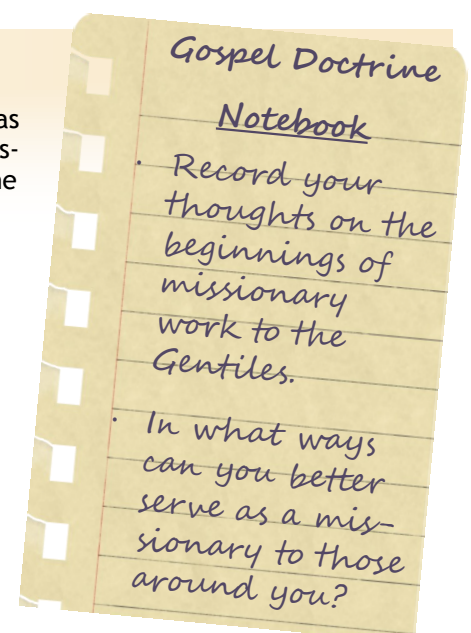 as
s-
ne
Gospel Doctrine
Notebook
• Record your
thoughts on the
beginnings of
missionary
work to the
Gentiles.
• In what ways
can you better
serve as a mis-
sionary to those
around you?